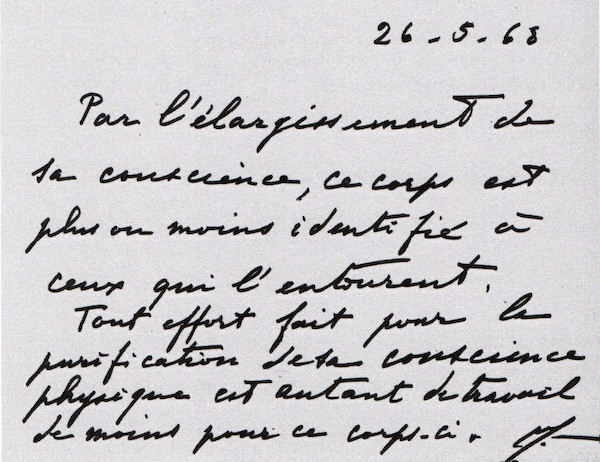 26-5-68
Par l'élargissement de
sa conscience, ce corps est
plus ou moins identifié à
ceux qui l'entourent.
Tout effort fait pour la
purification de sa conscience
physique est autant de travail
de moins pour ce corps-ci.